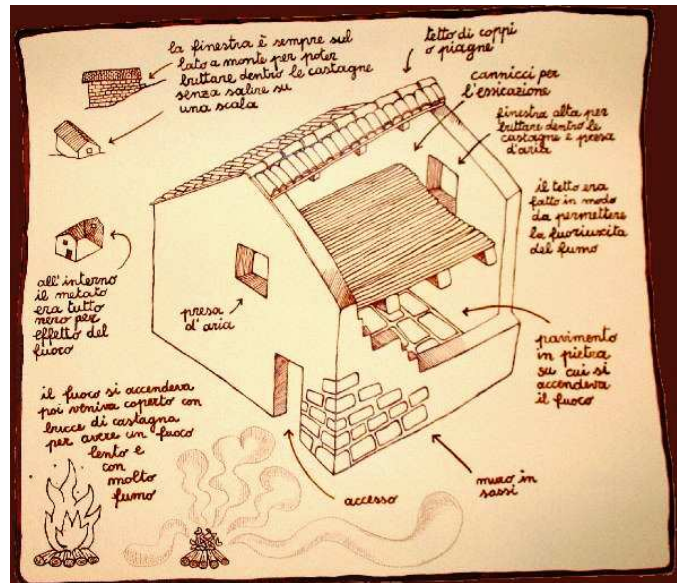 la finestra è sempre sul
lato a monte per poter
buttare dentro le castagne
senza salire su
una scala
tetto di coppi
o piagne
cannicci per
l'essicazione
finestra alta per
buttare dentro le
castagne e presa
d'aria
il tetto era
fatto in modo
da permettere
la fuoriuscita
del fumo
all'interno
il metato
era tutto
nero per
effetto del
fuoco
presa
d'aria
pavimento
in pietra
su cui si
accendeva
il fuoco
il fuoco si accendeva
poi veniva coperto con
bucce di castagna
per avere un fuoco
lento e
con
molto
fumo
accesso
muro in
sassi